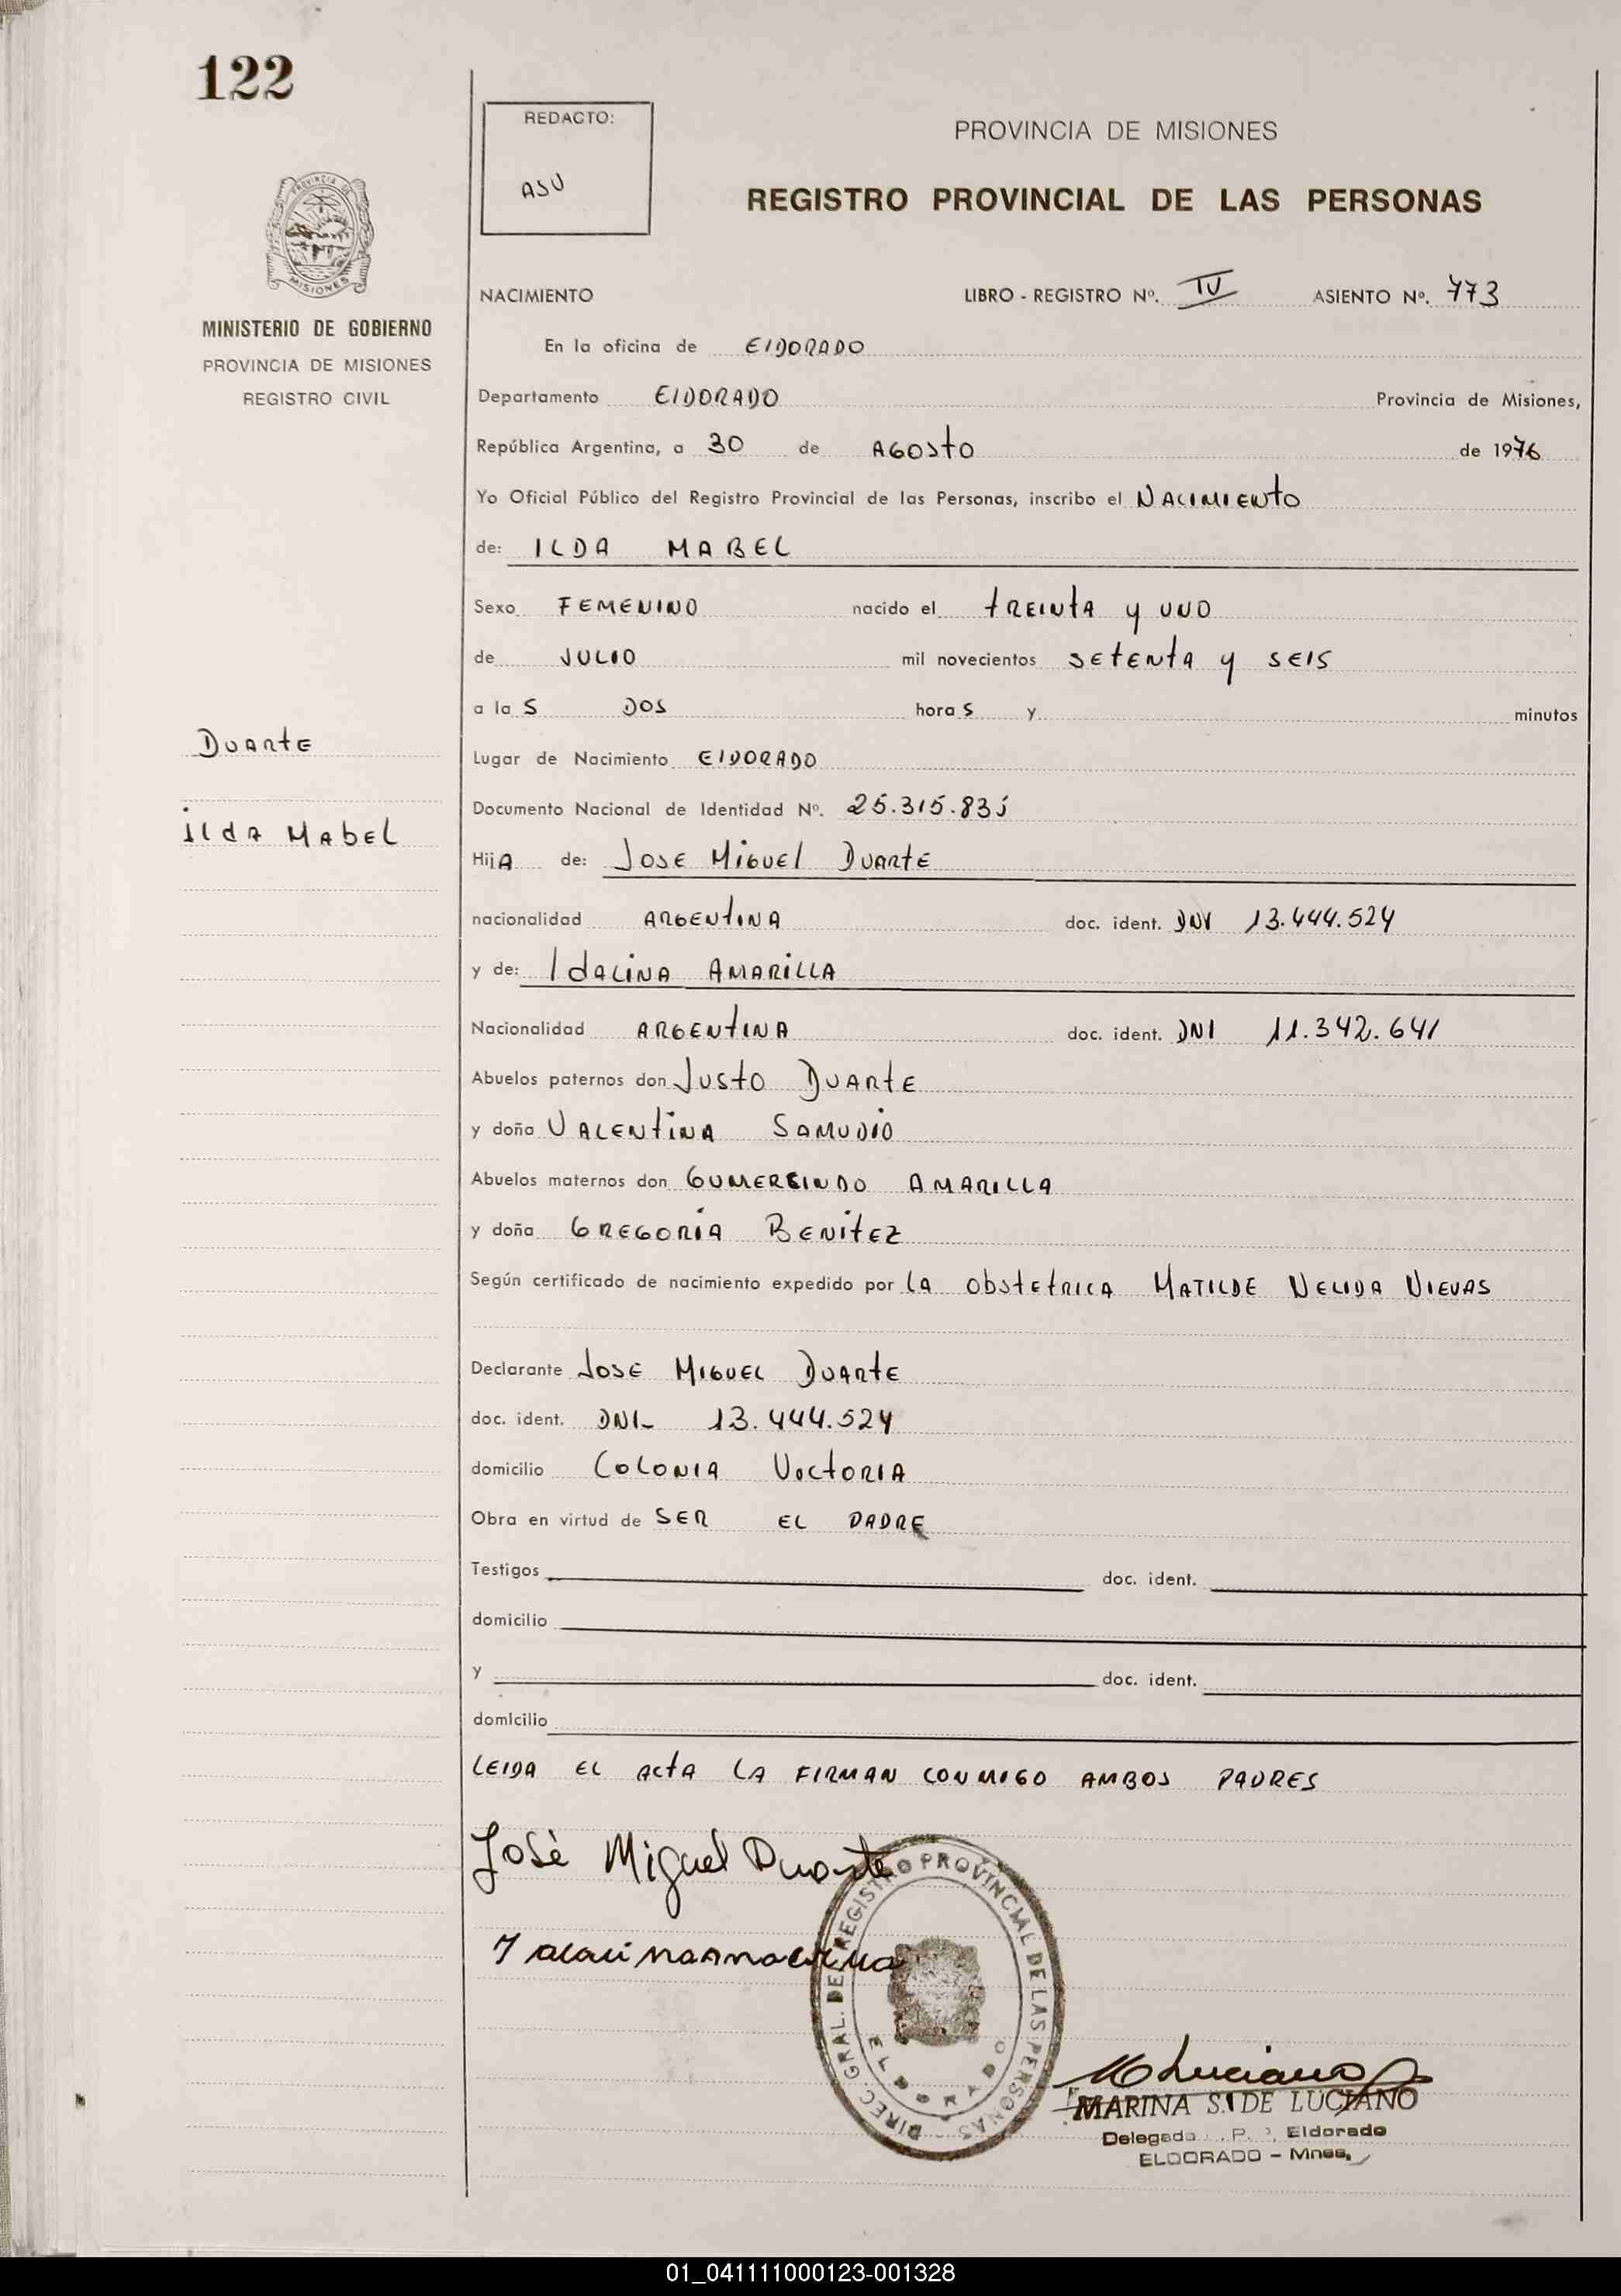 122
REDACTO:
ASU
PROVINCIA DE MISIONES
REGISTRO PROVINCIAL DE LAS PERSONAS
PROVINCIA DE
MISIONES
MINISTERIO DE GOBIERNO
PROVINCIA DE MISIONES
REGISTRO CIVIL
NACIMIENTO LIBRO - REGISTRO Nº. IV ASIENTO Nº. 773
En la oficina de ElDORADO
Departamento ElDORADO Provincia de Misiones,
República Argentina, a 30 de AGOSTO de 1976
Yo Oficial Público del Registro Provincial de las Personas, inscribo el NACIMIENTO
de: ILDA MABEL
Sexo FEMENINO nacido el tREINtA y UNO
de JULIO mil novecientos SEtENtA y SEIS
a la S DOS hora S y minutos
Duarte
Ilda Mabel
Lugar de Nacimiento ElDORADO
Documento Nacional de Identidad Nº. 25.315.835
Hij A de: Jose Miguel Duarte
nacionalidad ARGENtINA doc. ident. DNI 13.444.524
y de: Idalina AMARILLA
Nacionalidad ARGENtINA doc. ident. DNI 11.342.641
Abuelos paternos don Justo Duarte
y doña VALENtINA SAMUDIO
Abuelos maternos don GUMERSINDO AMARILLA
y doña GREGORIA BENITEZ
Según certificado de nacimiento expedido por LA ObstEtRICA MATILDE NELIDA NIEVAS
Declarante Jose MIGUEL DUARTE
doc. ident. DNI 13.444.524
domicilio COLONIA VICTORIA
Obra en virtud de SER EL PADRE
Testigos doc. ident.
domicilio
y doc. ident.
domicilio
LEIDA EL ACtA LA FIRMAN CONMIGO AMBOS PADRES
José Miguel Duarte
DIREC. GRAL. DEL REGISTRO PROVINCIAL DE LAS PERSONAS
ELDORADO
M Luciano
MARINA S. DE LUCIANO
Delegada P. Eldorado
ELDORADO - Mnes.
01_041111000123-001328